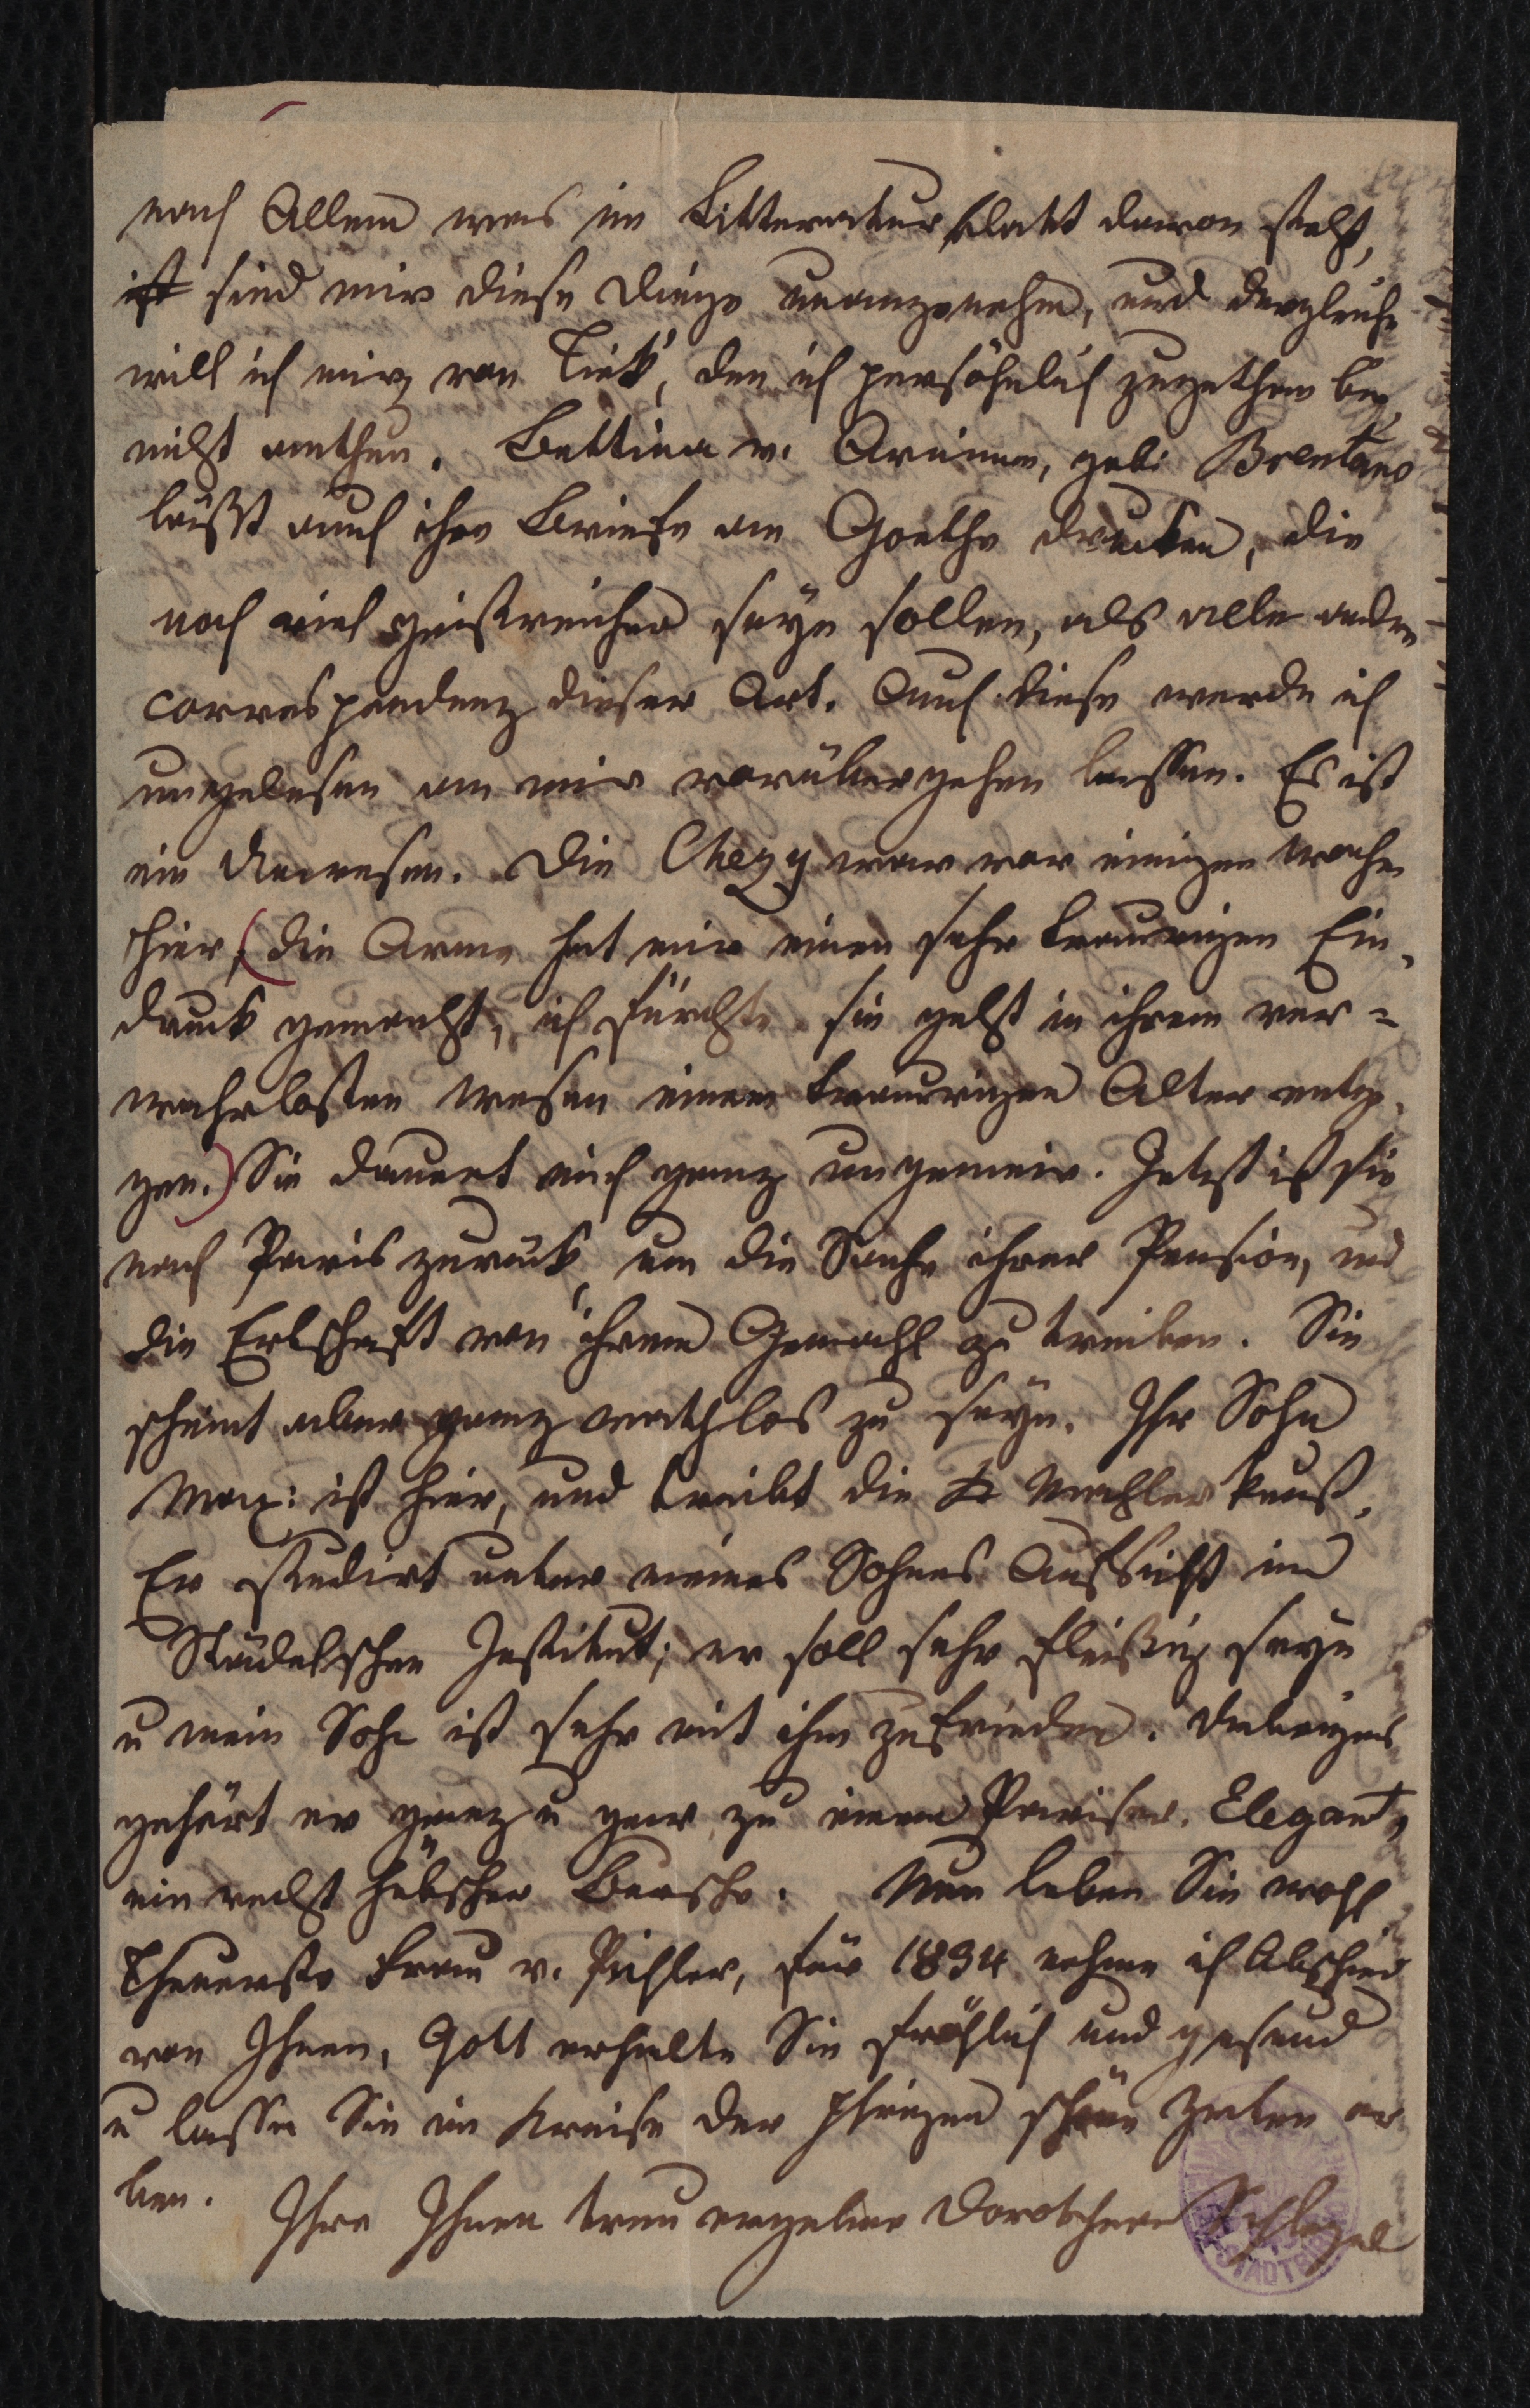 nach Allem was im Litteraturblatt davon steht,
ist sind mir diese Dinge unangenehm, und dergleichen
will ich mir von Tiek, den ich persöhnlich zugethan bin,
nicht anthun. Bettina v. Arnimm, geb: Brentano
läßt auch ihre Briefe an Goethe drucken, die
noch viel geistreicher seyn sollen, als alle andre
correspondenz dieser Art. Auch diese werde ich
ungelesen an mir vorübergehen lassen. Es ist
ein Unwesen. Die Chezy war vor einigen Wochen
hier, (die Arme hat mir einen sehr traurigen Ein-
druck gemacht, ich fürchte sie geht in ihrem ver=
wahrlosten Wesen einem traurigen Alter entge-
gen.) Sie dauert mich ganz ungemein. Jetzt ist sie
nach Paris zurück, um die Sache ihrer Pension, und
die Erbschaft von ihrem Gemahl zu treiben. Sie
scheint aber ganz rathlos zu seyn. Ihr Sohn
Max: ist hier, und treibt die Mahlerkunst.
Er studirt unter meines Sohnes Aufsicht im
Städelschen Institut; er soll sehr fleißig seyn
u mein Sohn ist sehr mit ihm zufrieden. Uebrigens
gehört er ganz u gar zu einem Pariser Elegant,
ein recht hübscher Bursche. Nun leben Sie wohl
Theuerste Frau v. Pichler, für 1834 nehme ich Abschied
von Ihnen, Gott erhalte Sie fröhlich und gesund
u lasse Sie im Kreise der Ihrigen schöne Zeiten er
leben.
Ihre Ihnen treu ergebene Dorothea Schlegel